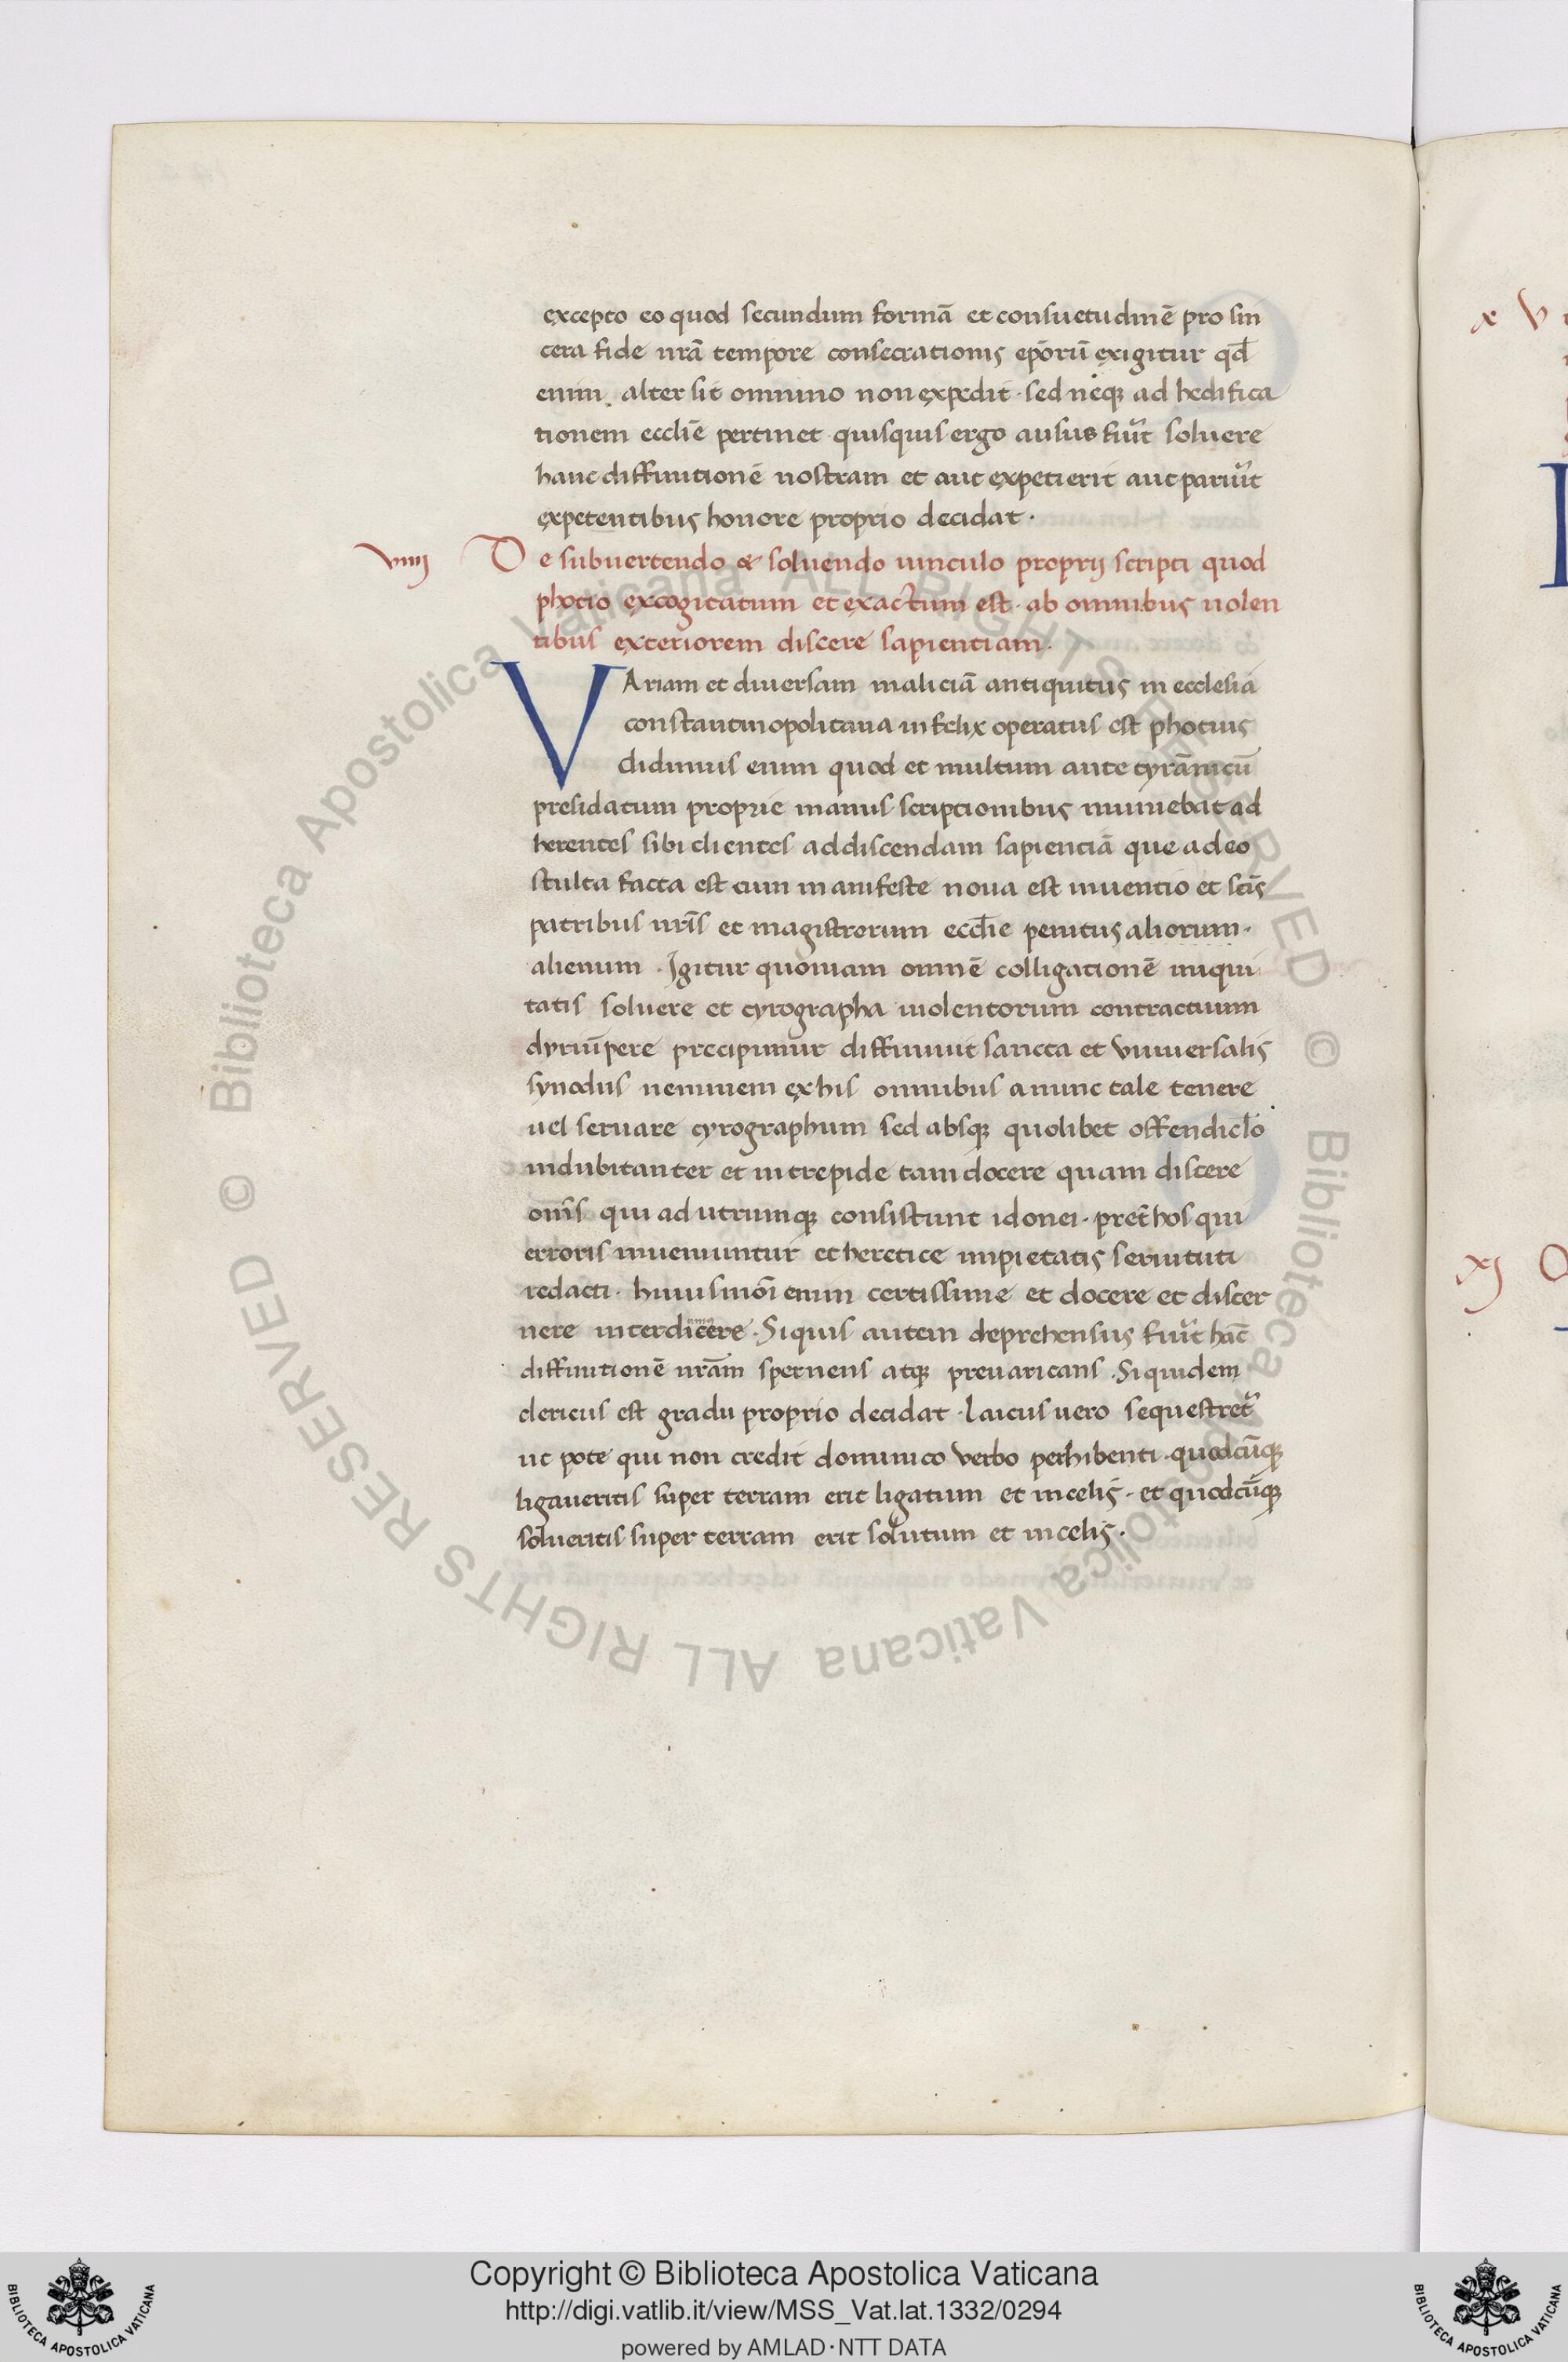 excepto eo quod secundum formā et consuetudinē pro sin
cera fide nrā tempore consecrationis epōrū exigitur qđ
enim alter sit omnino non expedit · sed neq̨ ad hedifica
tionem eccliē pertinet quisquis ergo ausus fiu᷑it soluere
hanc diffinitionē nostram et aut expetierit aut pariu᷑it
expetentibus honore proprio decidat ·
viiij De subuertendo & soluendo uinculo proprij scripti quod
photio excogitatum et exactum est · ab omnibus uolen
tibus exteriorem discere sapientiam ·
VAriam et diuersam maliciā antiquitus in ecclesia
constantinopolitana infelix operatus est photius
didimus enim quod et multum ante tyrānicū
presidatum proprie manus scriptionibus muniebat ad
herentes sibi clientes addiscendam sapienciā que adeo
stulta facta est cum manifeste noua est inuentio et scīs
patribus nrīs et magistrorum eccłie penitus aliorum ·
alienum · Igitur quoniam omnē colligationē iniqui
tatis soluere et cyrographa uiolentorum contractuum
dyrūpere precipimur diffiniuit sancta et vniuersalis
synodus neminem ex his omnibus a nunc tale tenere
uel seruare cyrographum sed absq̨ quolibet offendicło
indubitanter et intrepide tam docere quam discere
om̄s qui ad utrumq̨ consistunt idonei · pret̄ hos qui
erroris inueniuntur et heretice impietatis seruituti
redacti · huiusmōi enim certissime et docere et discer
nere interdicere · Siquis autem deprehensus fiu᷑it hāc
diffinitionē nrām spernens atq̨ preuaricans · Siquidem
clericus est gradu proprio decidat · laicus uero sequestret᷑
ut pote qui non credit dominico verbo perhibenti · quodcūq̨
ligaueritis super terram erit ligatum et in celis · et quodcūq̨
solueritis super terram erit solutum et in celis ·
x V
xj
© Biblioteca Apostolica Vaticana ALL RIGHTS RESERVED © Biblioteca Apostolica Vaticana ALL RIGHTS RESERVED
Copyright © Biblioteca Apostolica Vaticana
http://digi.vatlib.it/view/MSS_Vat.lat.1332/0294
powered by AMLAD·NTT DATA
BIBLIOTECA APOSTOLICA VATICANA
BIBLIOTECA APOSTOLICA VATICANA